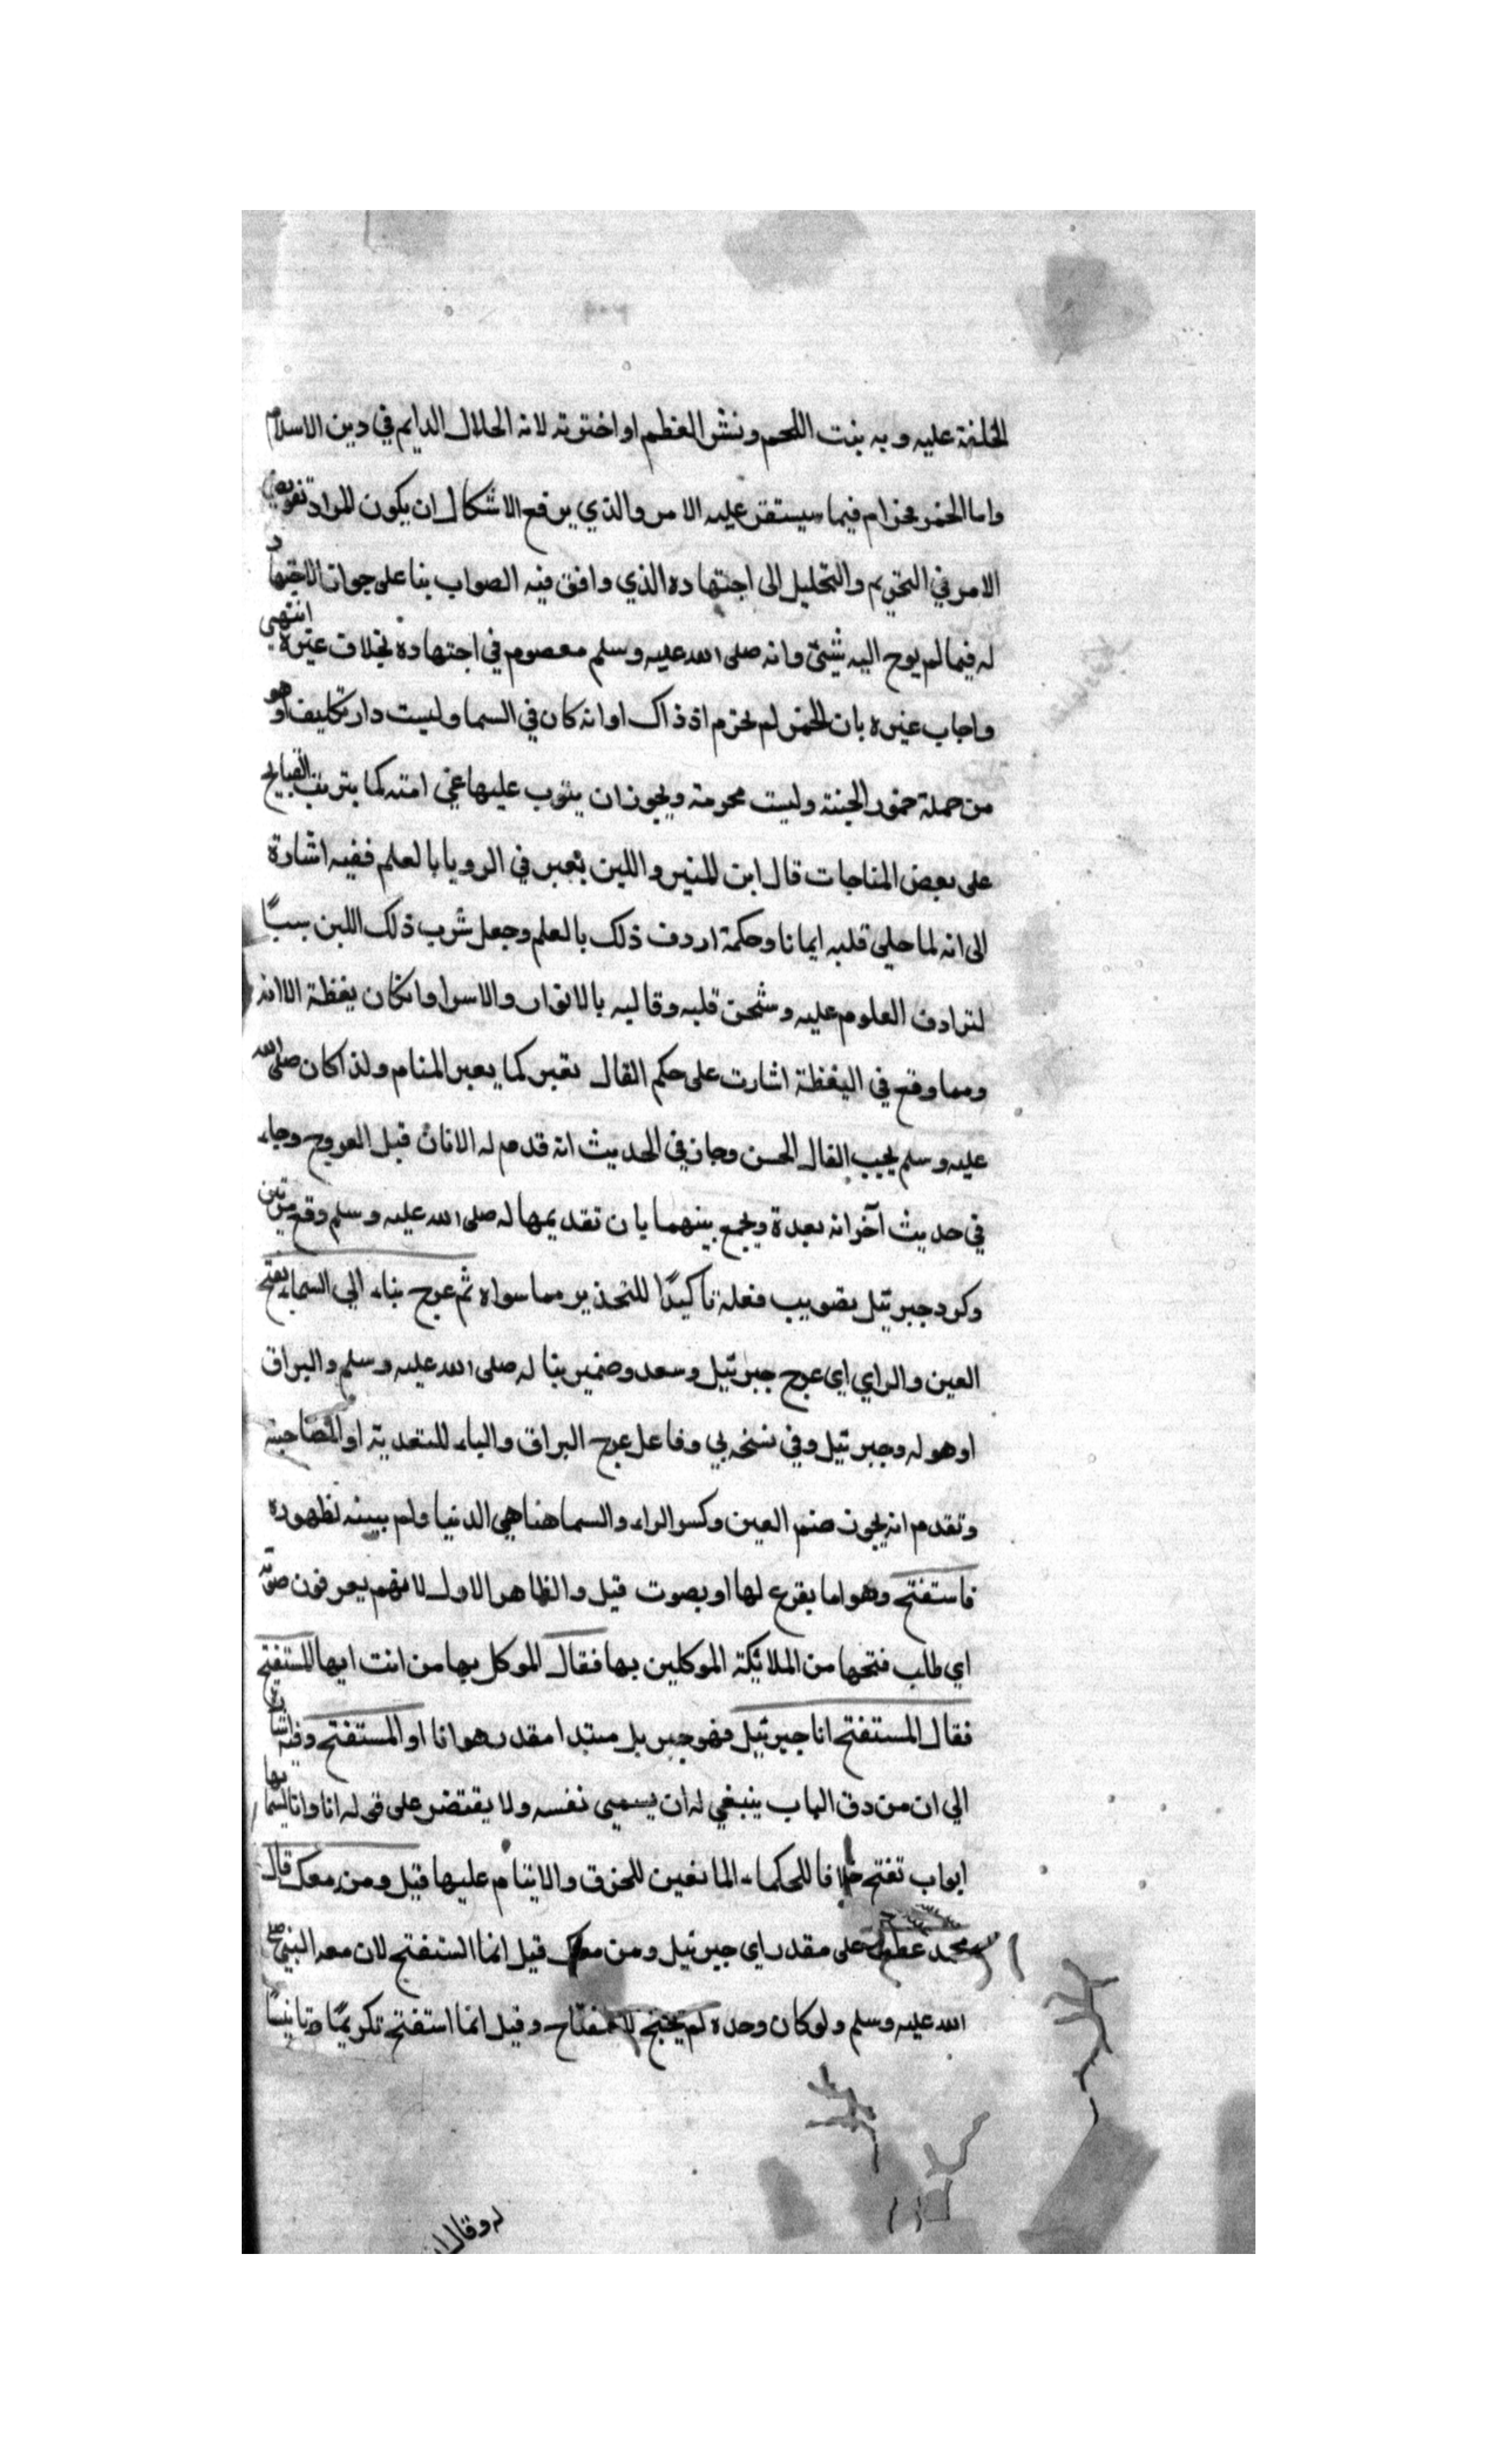 الخلفة عليه وبه ينبت اللحم ونشز العظم او اخترته لانه الحلال الدايم في دين الاسلام
واما الخمر فحرام فيما سيستقر عليه الامر والذي يرفع الاشكال ان يكون المراد تفويض
الامر في التحريم والتحليل الى اجتهاده الذي وافق فيه الصواب بنا على جواز الاجتهاد
له فيما لم يوح اليه شيئ وانه صلى الله عليه وسلم معصوم في اجتهاده بخلاف غيره انتهى
واجاب غيره بان الخمر لم تحرم اذ ذاك او انه كان في السما وليست دار تكليف او هو
من جملة خمور الجنة وليست محرمة ويجوز ان يتوب عليها غي امته كما يترتب القبايح
على بعض المناجات قال ابن المنير واللبن يعبر في الرويا بالعلم ففيه اشارة
الى انه لما حلى قلبه ايمانا وحكمة اردف ذلك بالعلم وجعل شرب ذلك اللبن سببًا
لترادف العلوم عليه وشحن قلبه وقالبه بالانوار والاسرا وان كان يغظة الا انه
ومما وقع في اليغظة اشارت على حكم الفال تعبر كما يعبر المنام ولذا كان صلى الله
عليه وسلم يحب الفال الحسن وجا في الحديث انه قدم له الانان قبل العروج وجاء
في حديث آخر انه بعدة ويجمع بينهما بان تقديمها له صلى الله عليه وسلم وقع مرتين
وكرد جبرئيل بضويب فعله تاكيدًا للتحذير مما سواه ثم عرج بناء الي السماء بفتح
العين والراي اي عرج جبرئيل وسعد وضمير بنا له صلى الله عليه وسلم والبراق
او هو له وجبرئيل وفي نسخه بي وفاعل عرج البراق والباء للتعدية او المصاحبة
وتقدم انه يجوز ضم العين وكسر الراء والسما هنا هي الدنيا ولم يبينه لظهوره
فاستفتح وهو اما بقرع لها او بصوت قيل والظاهر الاول لانهم يعرفون صوته
اي طلب فتحها من الملائكة الموكلين بها فقال الموكل بها من انت ايها المستفتح
فقال المستفتح انا جبرئيل فهو جبريل مبتدا مقدر هو انا او المستفتح وفيه اشارة
الي ان من دق الباب ينبغي له ان يسمي نفسه ولا يقتضر على قوله انا وان السما بها
ابواب تفتح خلافا للحكماء المانعين للخرق والايتام عليها قيل ومن معك قال
محمد عطف على مقدر اي جبرئيل ومن معك قيل انما استفتح لان معه النبي صلى
الله عليه وسلم ولو كان وحده لم يحتج للاستفتاح وقيل انما استفتح تكريمًا وتانيسًا
له وقال